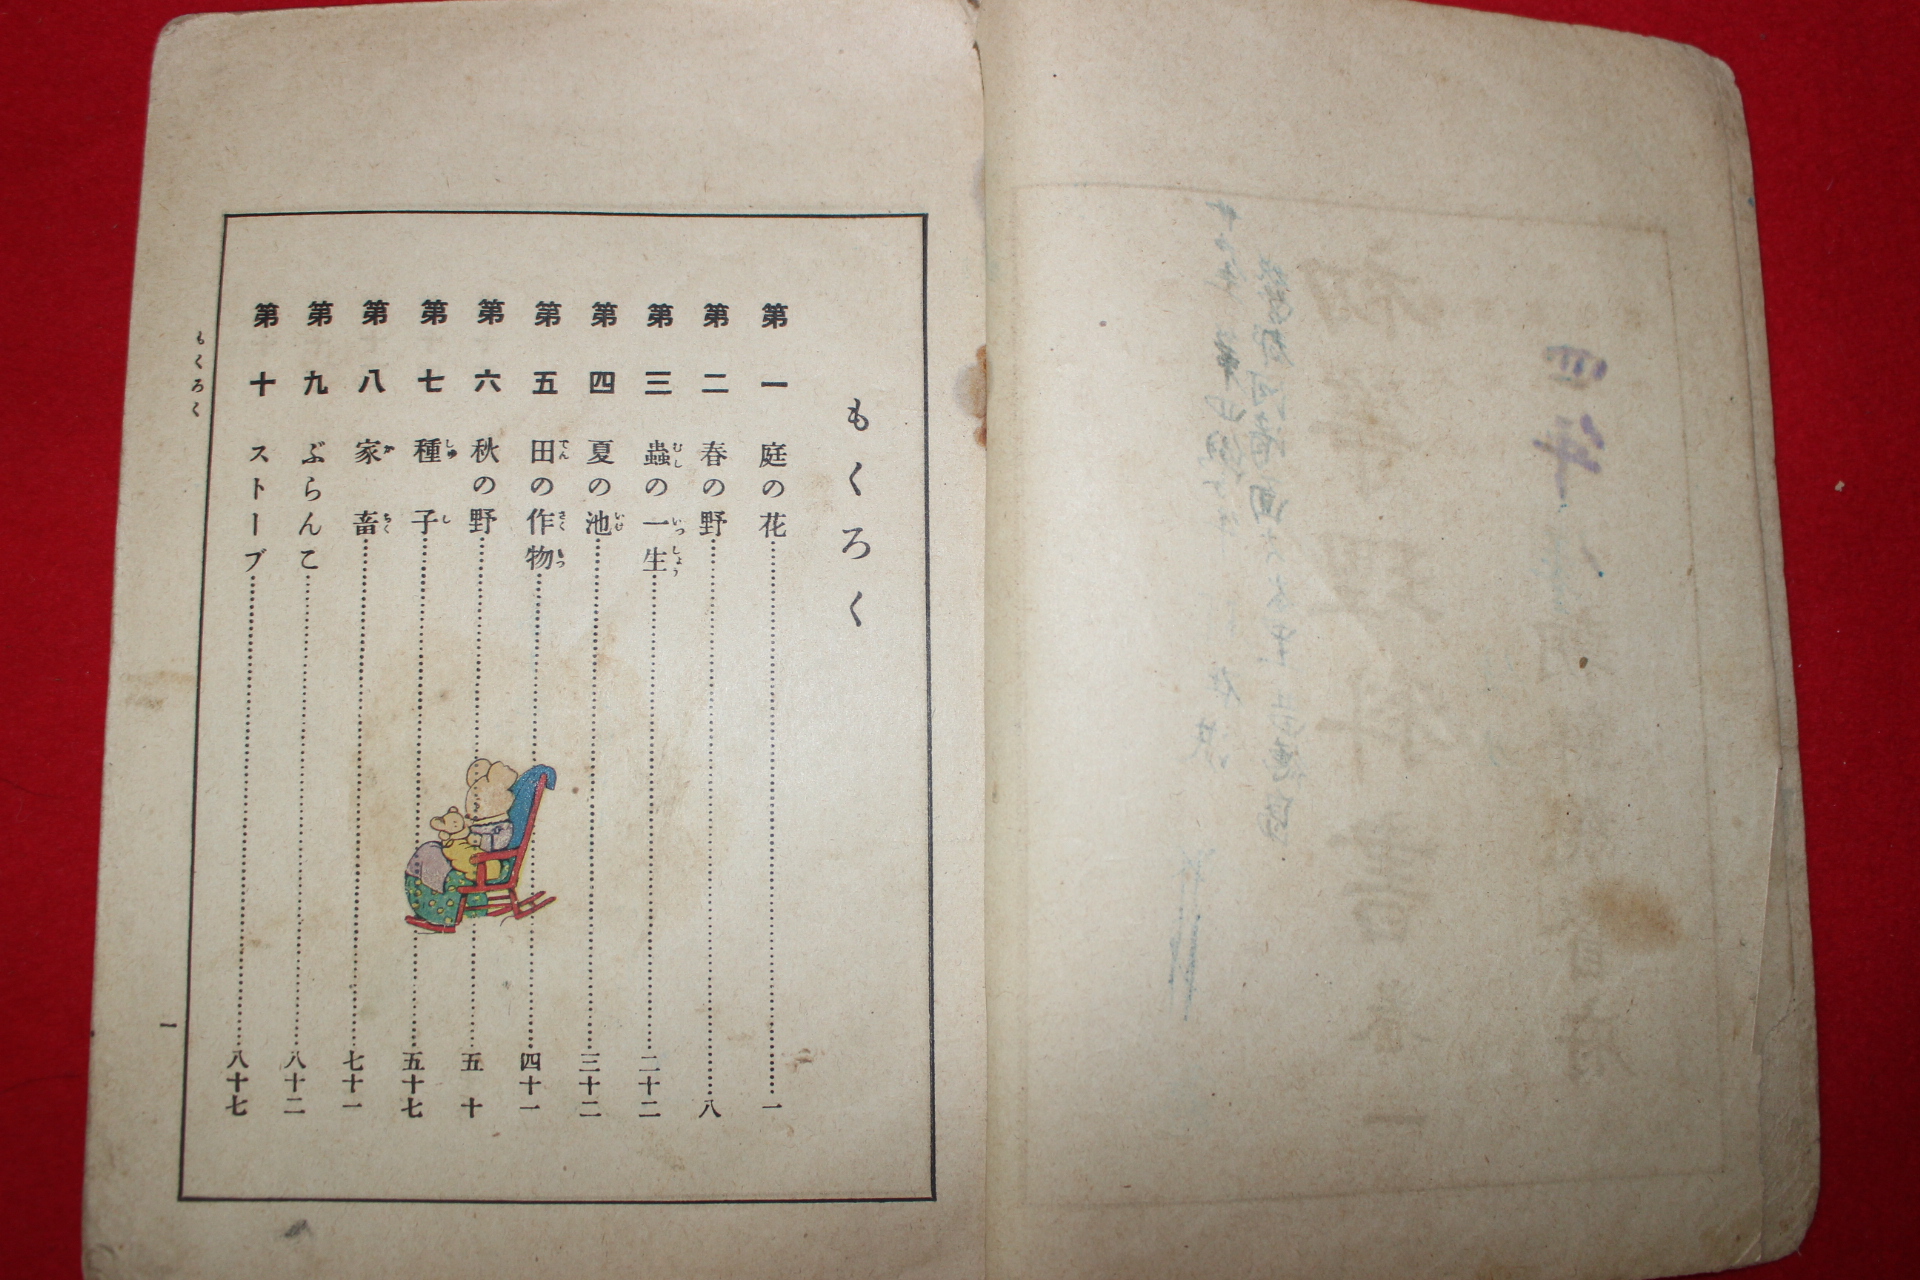 もくろく
第一 庭の花 一
第二 春の野 八
第三 蟲の一生 二十二
第四 夏の池 三十二
第五 田の作物 四十一
第六 秋の野 五十
第七 種子 五十七
第八 家畜 七十一
第九 ぶらんこ 八十二
第十 ストーブ 八十七
もくろく
一